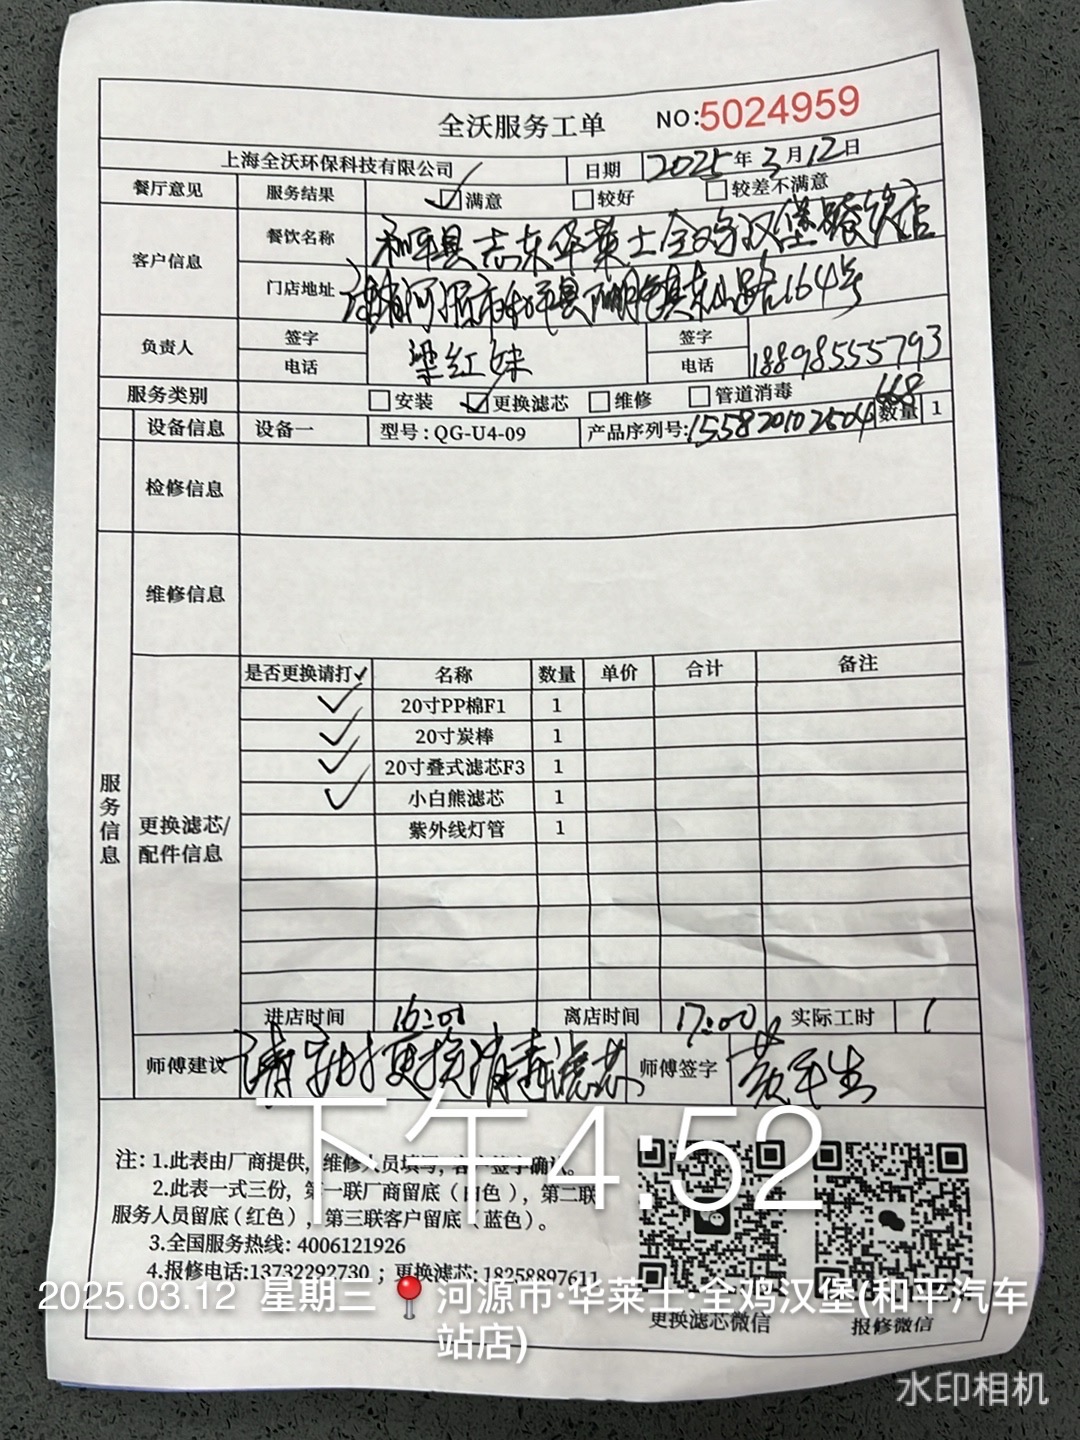 全沃服务工单 NO:5024959
上海全沃环保科技有限公司 日期 2025年3月12日
餐厅意见 服务结果 满意 较好 较差不满意
客户信息 餐饮名称 和平县志东华莱士全鸡汉堡餐饮店
门店地址 河源市和平县阳明镇东山路164号
负责人 签字 电话 梁红妹 签字 电话 18898555793
服务类别 安装 更换滤芯 维修 管道消毒
设备信息 设备一 型号:QG-U4-09 产品序列号:155820102504668 数量 1
检修信息
维修信息
服务信息
更换滤芯/配件信息
是否更换请打✓ 名称 数量 单价 合计 备注
✓ 20寸PP棉F1 1
✓ 20寸炭棒 1
✓ 20寸叠式滤芯F3 1
✓ 小白熊滤芯 1
紫外线灯管 1
进店时间 16:01 离店时间 17:00 实际工时 1
师傅建议 请定时更换消毒滤芯 师傅签字
下午4:52
注:1.此表由厂商提供,维修人员填写,客户签字确认。
2.此表一式三份,第一联厂商留底(白色),第二联
服务人员留底(红色),第三联客户留底(蓝色)。
3.全国服务热线:4006121926
4.报修电话:13732292730;更换滤芯:18258897611
更换滤芯微信 报修微信
2025.03.12 星期三 河源市·华莱士·全鸡汉堡(和平汽车
站店)
水印相机